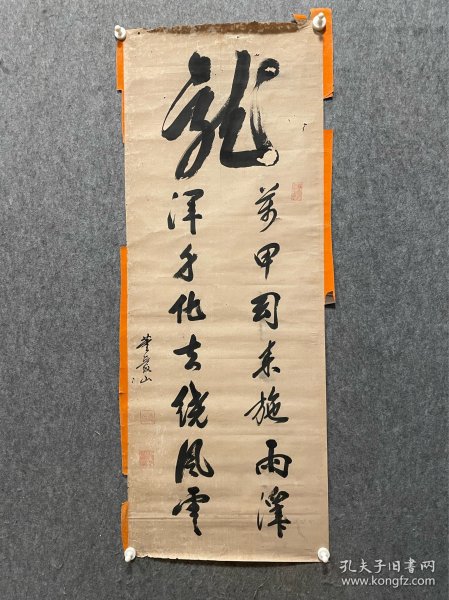 龍
萬甲來施雨澤
渾身化去繞風雲
山
孔夫子旧书网
www.kongfz.com